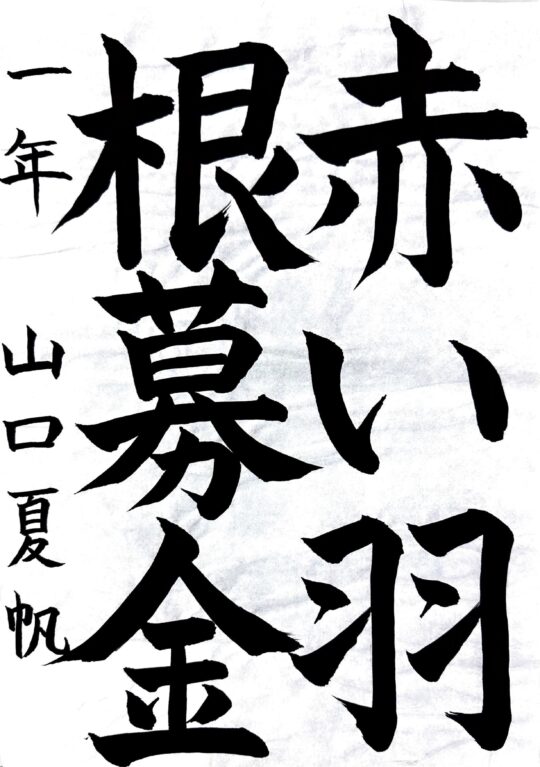 赤い羽
根募金
一年 山口夏帆